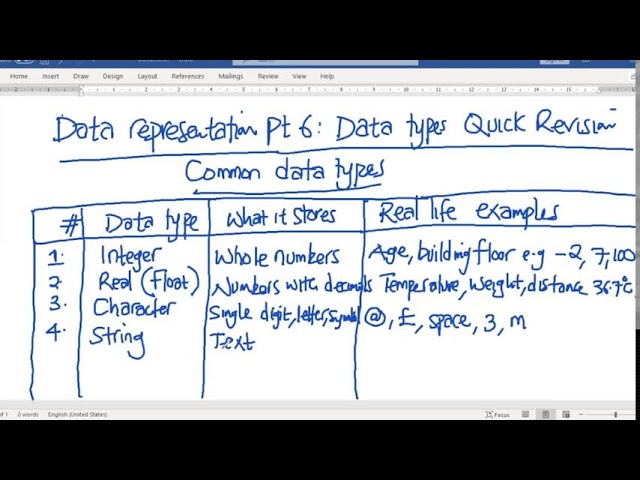 Design
Layout
References
Mailings
Review
View
Help
Data representation Pt 6: Data types Quick Revision
Common data types
# Data type What it stores Real life examples
1. Integer Whole numbers Age, building floor e.g -2, 7, 100
2. Real (float) Numbers with decimals Temperature, weight, distance 36.7°C
3. Character Single digit, letter, symbol @, £, space, 3, m
4. String Text
of 1 0 words English (United States) Focus